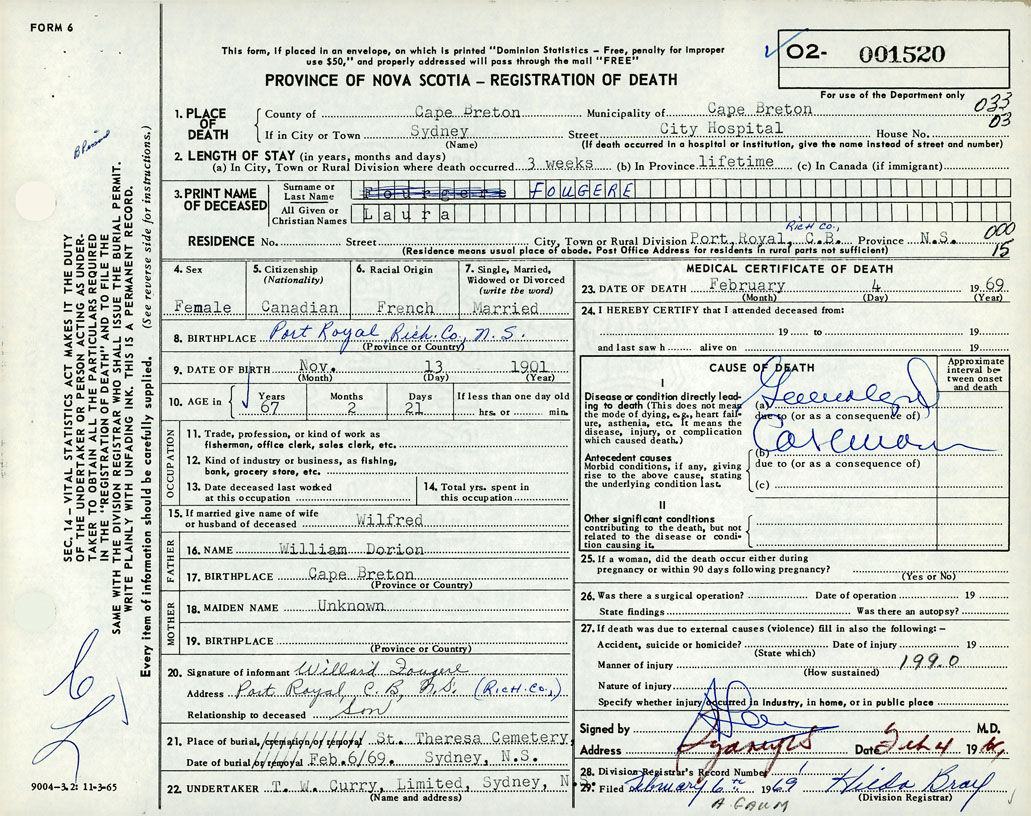 FORM 6
This form, if placed in an envelope, on which is printed "Dominion Statistics – Free, penalty for improper
use $50," and properly addressed will pass through the mail "FREE"
PROVINCE OF NOVA SCOTIA – REGISTRATION OF DEATH
02- 001520
For use of the Department only
033
03
1. PLACE OF DEATH
County of Cape Breton Municipality of Cape Breton
If in City or Town Sydney Street City Hospital House No.
(Name) (If death occurred in a hospital or institution, give the name instead of street and number)
2. LENGTH OF STAY (in years, months and days)
(a) In City, Town or Rural Division where death occurred 3 weeks (b) In Province lifetime (c) In Canada (if immigrant)
3. PRINT NAME OF DECEASED
Surname or Last Name Fourgere FOUGERE
All Given or Christian Names Laura
RICH CO.,
RESIDENCE No. Street City, Town or Rural Division Port Royal, C.B. Province N.S.
000
15
(Residence means usual place of abode. Post Office Address for residents in rural parts not sufficient)
4. Sex
Female
5. Citizenship
(Nationality)
Canadian
6. Racial Origin
French
7. Single, Married,
Widowed or Divorced
(write the word)
Married
8. BIRTHPLACE Port Royal, Rich. Co., N.S.
(Province or Country)
9. DATE OF BIRTH Nov. 13 1901
(Month) (Day) (Year)
10. AGE in
Years Months Days If less than one day old
67 2 21 hrs. or min.
OCCUPATION
11. Trade, profession, or kind of work as
fisherman, office clerk, sales clerk, etc.
12. Kind of industry or business, as fishing,
bank, grocery store, etc.
13. Date deceased last worked
at this occupation
14. Total yrs. spent in
this occupation
15. If married give name of wife
or husband of deceased Wilfred
FATHER
16. NAME William Dorion
17. BIRTHPLACE Cape Breton
(Province or Country)
MOTHER
18. MAIDEN NAME Unknown
19. BIRTHPLACE
(Province or Country)
20. Signature of informant Willard Fougere
Address Port Royal, C.B, N.S. (RICH. CO.,)
Relationship to deceased Son
21. Place of burial, cremation or removal St. Theresa Cemetery,
Date of burial or removal Feb.6/69. Sydney, N.S.
22. UNDERTAKER T. W. Curry, Limited, Sydney, N.S.
(Name and address)
MEDICAL CERTIFICATE OF DEATH
23. DATE OF DEATH February 4 1969
(Month) (Day) (Year)
24. I HEREBY CERTIFY that I attended deceased from:
19 to 19
and last saw h alive on 19
CAUSE OF DEATH
Approximate
interval be-
tween onset
and death
I
Disease or condition directly lead-
ing to death (This does not mean
the mode of dying, e.g., heart fail-
ure, asthenia, etc. It means the
disease, injury, or complication
which caused death.)
(a)
due to (or as a consequence of)
(b)
Antecedent causes
Morbid conditions, if any, giving
rise to the above cause, stating
the underlying condition last.
due to (or as a consequence of)
(c)
II
Other significant conditions
contributing to the death, but not
related to the disease or condi-
tion causing it.
25. If a woman, did the death occur either during
pregnancy or within 90 days following pregnancy?
(Yes or No)
26. Was there a surgical operation? Date of operation 19
State findings Was there an autopsy?
27. If death was due to external causes (violence) fill in also the following: –
Accident, suicide or homicide? Date of injury 19
(State which)
Manner of injury 199.0
(How sustained)
Nature of injury
Specify whether injury occurred in Industry, in home, or in public place
Signed by M.D.
Address Sydney NS Date Feb 4 19
28. Division Registrar's Record Number
29. Filed February 6th 1969 Hilda Bray
(Division Registrar)
A GAUM
SEC. 14 – VITAL STATISTICS ACT MAKES IT THE DUTY
OF THE UNDERTAKER OR PERSON ACTING AS UNDER-
TAKER TO OBTAIN ALL THE PARTICULARS REQUIRED
IN THE "REGISTRATION OF DEATH" AND TO FILE THE
SAME WITH THE DIVISION REGISTRAR WHO SHALL ISSUE THE BURIAL PERMIT.
WRITE PLAINLY WITH UNFADING INK. THIS IS A PERMANENT RECORD.
Every item of information should be carefully supplied. (See reverse side for instructions.)
9004-3.2: 11-3-65